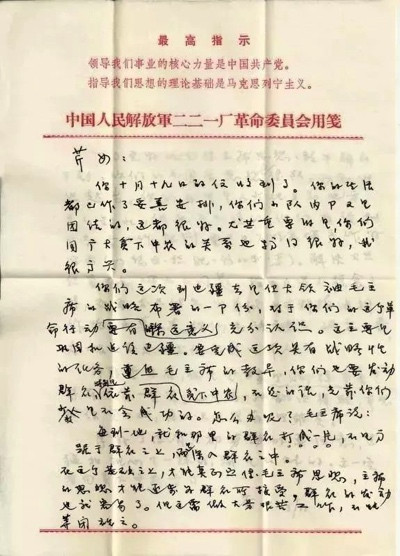 最高指示
领导我们事业的核心力量是中国共产党。
指导我们思想的理论基础是马克思列宁主义。
中国人民解放軍二二一厂革命委員会用笺
芹女：
你十月十九日的信收到了。你的生活
都已作了妥善安排，你们小队内部又是
团结的，这都很好。尤其重要的是，你们
同广大贫下中农的关系也搞得很好，我
很高兴。
你们这次到边疆去是伟大领袖毛主
席的战略布署的一部份，对于你们的这个革
命行动要有充分认识。这主要是
巩固和建设边疆。要完成这次具有战略性
的任务，毛主席的教导，你们也要发动
群众依靠群众贫下中农，不然的话，光靠你们
是不会成功的。怎么办呢？毛主席说：
每到一地，就和那里的群众打成一片，不是高
踞于群众之上，而是深入群众之中。
在这个基础上，才能真正宣传毛主席思想，主席
的思想才能逐步为群众所接受。群众的发动
也就容易了。但这需做大量艰苦工作，不能
草问。